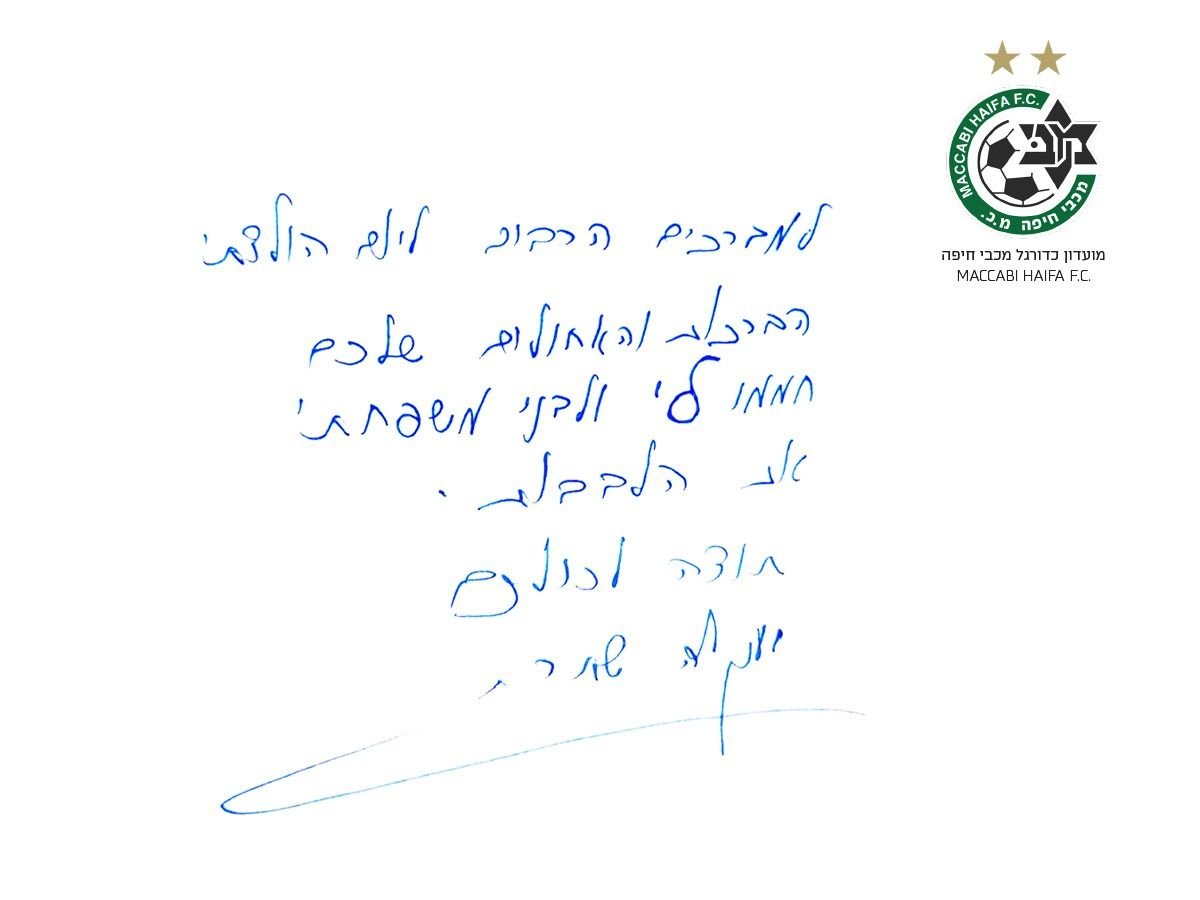 MACCABI HAIFA F.C.
מכבי חיפה מ.כ.
מועדון כדורגל מכבי חיפה
MACCABI HAIFA F.C.
למברכים הרבים ליום הולדתי
הברכות והאחולים שלכם
חממו לי ולבני משפחתי
את הלבבות.
תודה לכולכם
יענקל'ה שחר